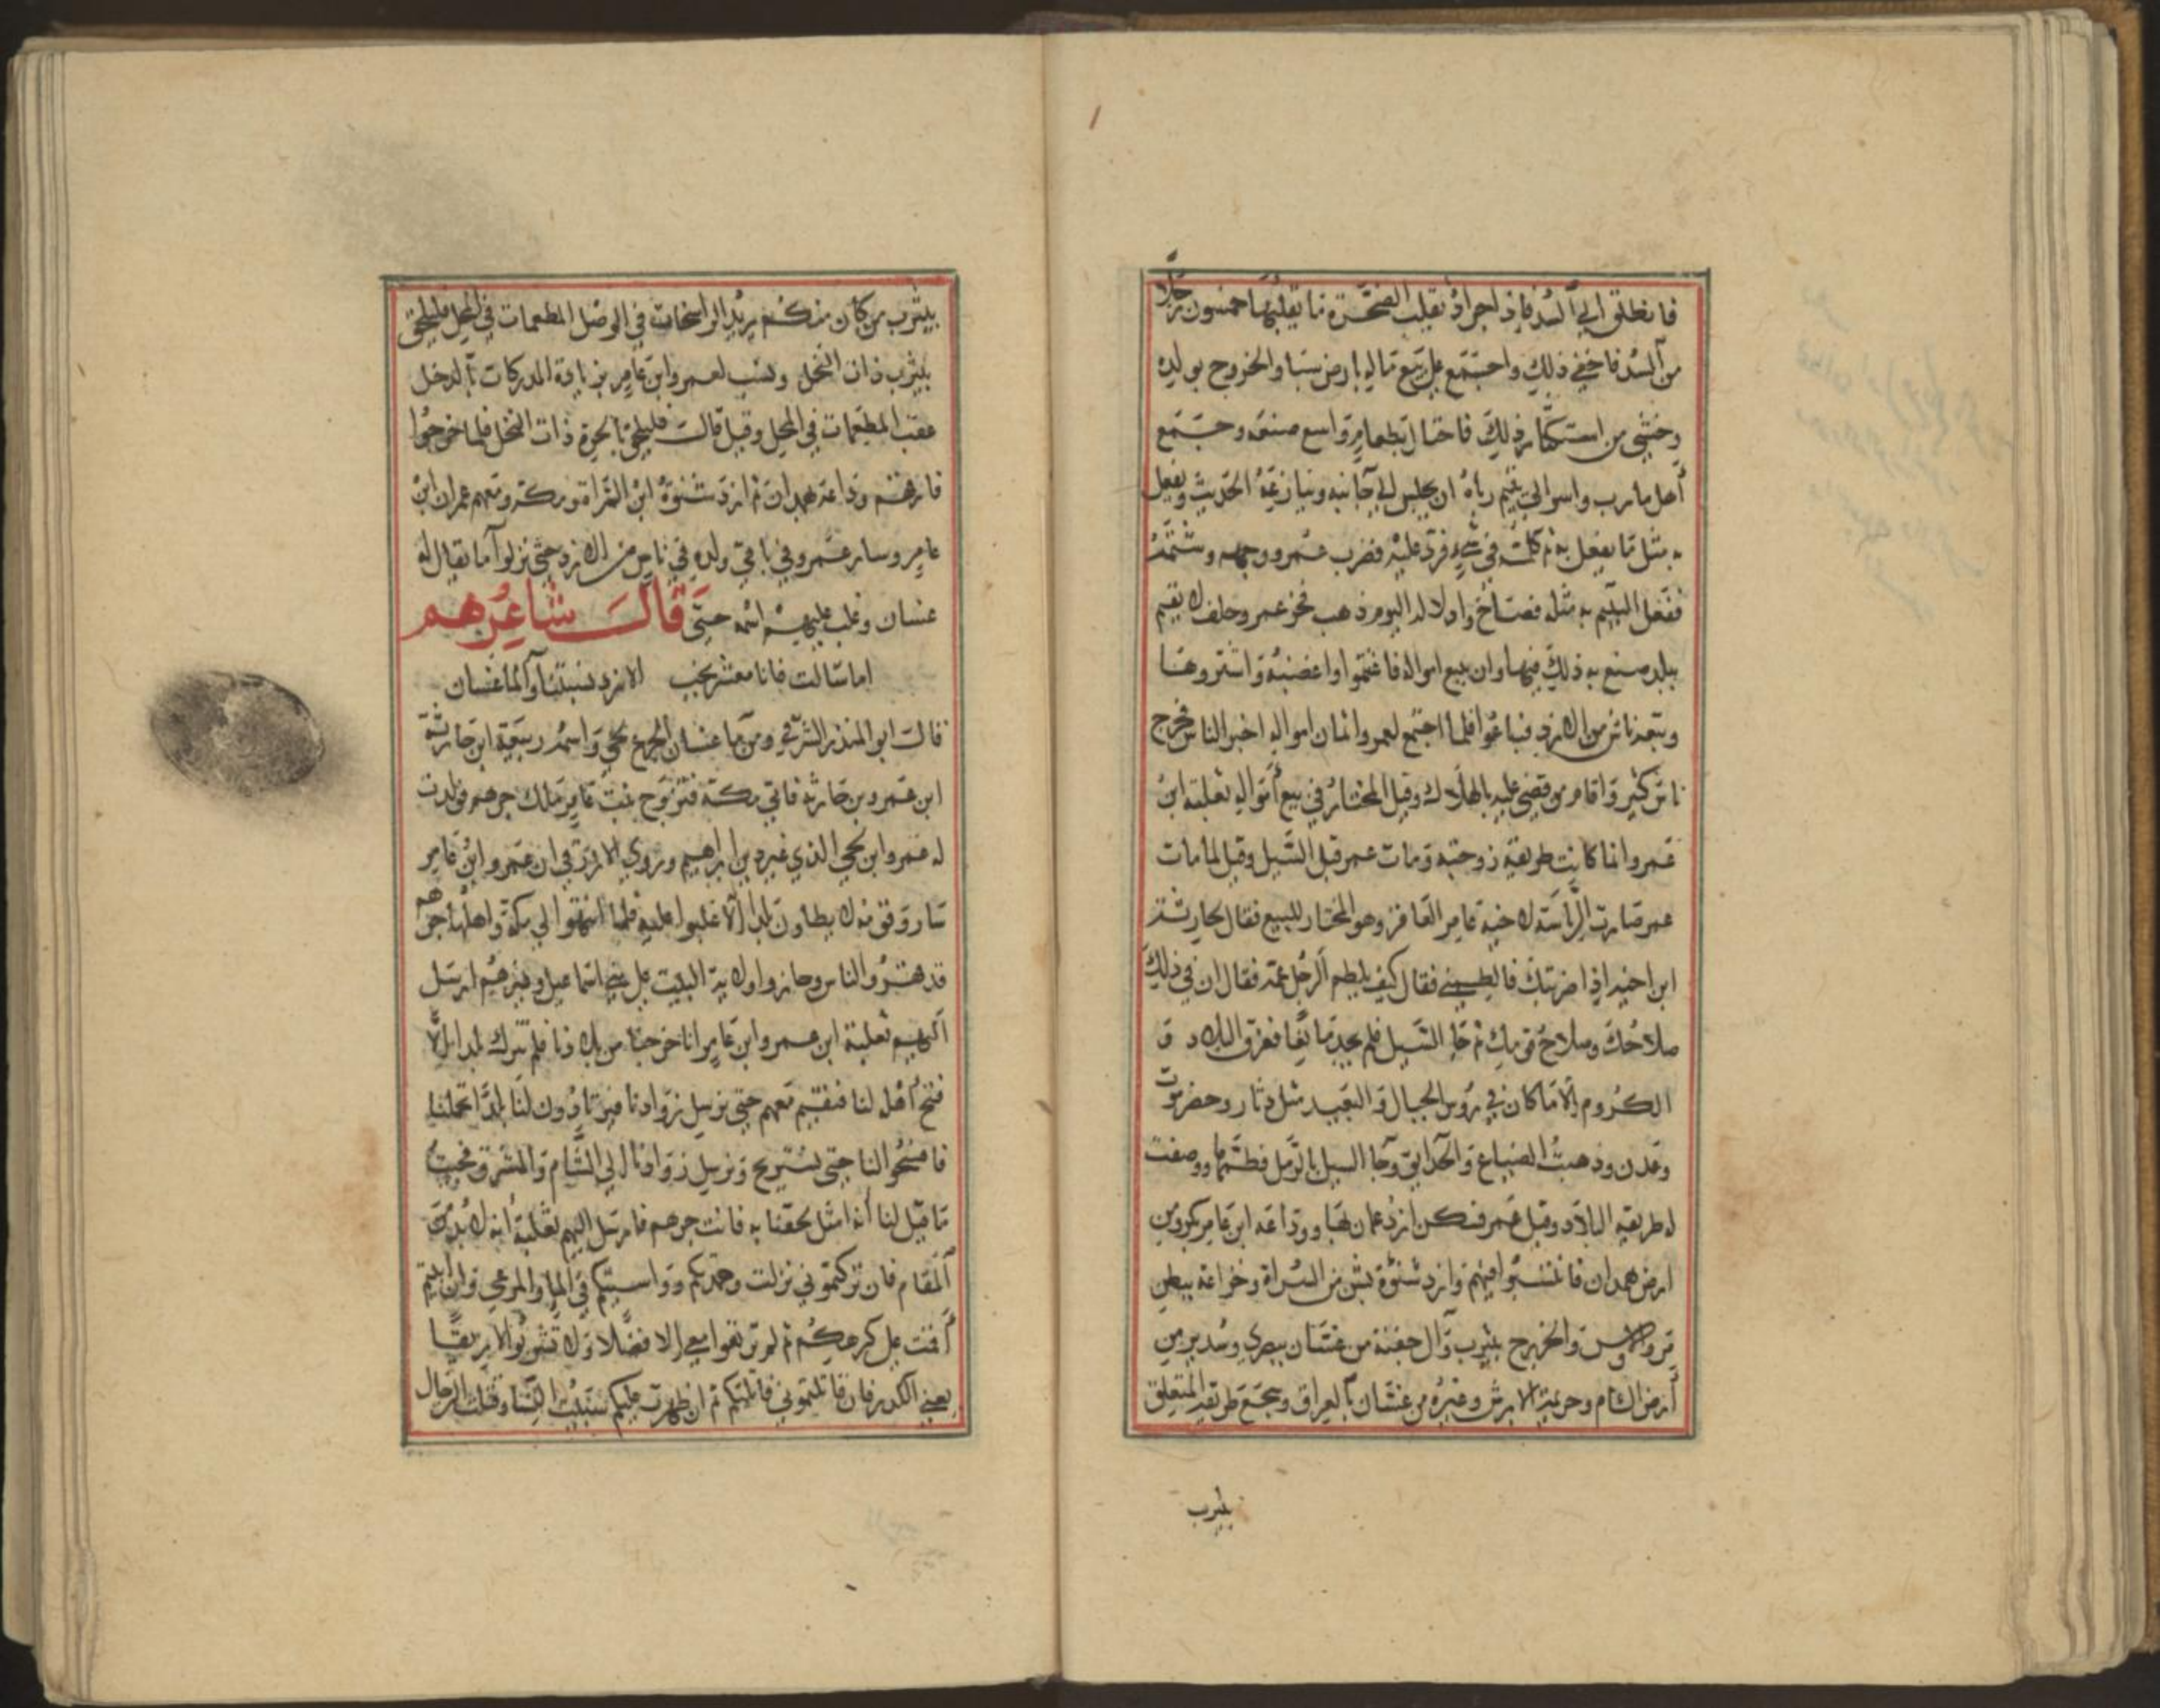 فانطلق الي السد فإذا جراذ تقلب الصخرة ما يقلبها خمسون رجلا
من السد فاخفي ذلك واجتمع علي بيع ماله بارض سبا والخروج بولده
وخشي من استنكار ذلك فاحتال بطعام واسع صنعه وجمع
أهل مارب واسر الي يتيم رباه ان يجلس الي جانبه وينازعه الحديث ويفعل
به مثل ما يفعل به ثم كلمه في شيء فرد عليه فضرب عمرو وجهه وشتمه
ففعل اليتيم به مثله فصاح واذلاه اليوم ذهب فخر عمرو وحلف لا يقيم
ببلد صنع به ذلك فيها وان يبيع امواله فاغتنموا غضبه واشتروها
وتبعه ناس من الازد فباعوا فلما اجتمع لعمرو اثمان امواله اخبر الناس فخرج
ناس كثير واقام من قضي عليه بالهلاك وقيل المختار في بيع أمواله ثعلبة ابن
عمرو انما كانت طريفة زوجته ومات عمر قبل السيل وقيل لما مات
عمر صارت الرياسة لاخيه عامر العاقر وهو المختار للبيع فقال لحارثة
ابن اخيه اذا ضربتك فالطمني فقال كيف يلطم الرجل عمه فقال ان في ذلك
صلاحك وصلاح قومك ثم جا السيل فلم يجد مانعا فغرق البلاد و
الكروم الا ما كان في روس الجبال والبعيد مثل ذمار وحضرموت
وعدن وذهبت الضياع والحدائق وجا السيل بالرمل فطمها ووصفت
له طريفه البلاد وقيل عمر فسكن ازد عمان بها ووداعه ابن عامر بكروس
ارض همدان فانتسبوا فيهم وازد شنؤة بشن من السراة وخزاعة ببطن
مر والاوس والخزرج بيثرب وآل جفنة من غسان ببصري وسدير من
أرض الشام وجذيمة الابرش وغيره من غسان بالعراق وسجع طريفه المتعلق
بيثرب
بيثرب من كان منكم يريد الراسخات في الوحل المطعمات في المحل فليلحق
بيثرب ذات النخل ونسب لعمرو ابن عامر بزيادة المدركات بالدخل
عقب المطعمات في المحل وقيل قالت فليلحق بالحرة ذات النخل فلما خرجوا
فارقتهم وداعة بهمدان ثم ازد شنؤة ابن السراة ومكة ومعهم عمران ابن
عامر وسار عمرو في باقي ولده في ناس من الازد حتى نزلوا ما يقال له
غسان وغلب عليهم اسمه حتى قال شاعرهم
اما سالت فانا معشر نجب الازد نسبتنا والما غسان
قال ابو المنذر الشرقي ومن ما غسان انخزع لحي واسمه ربيعة ابن حارثة
ابن عمرو بن حارثة فاتي مكة فتزوج بنت عامر ملك جرهم فولدت
له عمرو ابن لحي الذي غير دين ابراهيم وروي الازرقي ان عمرو ابن عامر
سار وقومه لا يطاون بلدا الا غلبوا عليه فلما انتهوا الي مكة واهلها جرهم
قد قهروا الناس وحازوا ولاية البيت علي بني اسماعيل وغيرهم ارسل
اليهم ثعلبة ابن عمرو ابن عامر انا خرجنا من بلادنا فلم ننزل بلدا الا
فسح أهله لنا فنقيم معهم حتى نرسل زوادنا فيرتادون لنا بلدا تحملنا
فافسحوا لنا حتى نستريح ونرسل زوادنا الي الشام والمشرق فحيث
ما قيل لنا أنه امثل لحقنا به فابت جرهم فارسل اليهم ثعلبة انه لا بد من
المقام فان تركتموني نزلت وحمدتكم وواسيتكم في الما والمرعي وان ابيتم
أقمت علي كرهكم ثم لم ترتعوا معي الا فضلا ولا تشربوا الا رنقا
يعني الكدر فان قاتلتموني قاتلتكم ثم ان ظهرت عليكم سبيت النسا وقتلت الرجال